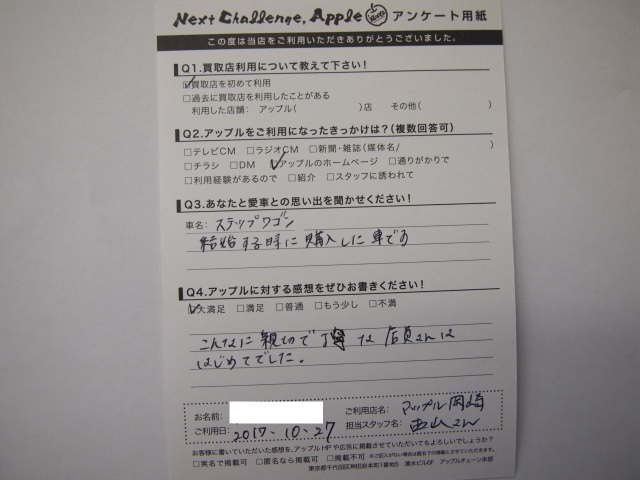 Next Challenge, Apple アンケート用紙
この度は当店をご利用いただきありがとうございました。
Q1.買取店利用について教えて下さい!
☑買取店を初めて利用
□過去に買取店を利用したことがある
利用した店舗: アップル( )店 その他( )
Q2.アップルをご利用になったきっかけは?(複数回答可)
□テレビCM □ラジオCM □新聞・雑誌(媒体名/ )
□チラシ □DM ☑アップルのホームページ □通りがかりで
□利用経験があるので □紹介 □スタッフに誘われて
Q3.あなたと愛車との思い出を聞かせください!
車名: ステップワゴン
結婚する時に購入した車です
Q4.アップルに対する感想をぜひお書きください!
☑大満足 □満足 □普通 □もう少し □不満
こんなに親切で丁寧な店員さんは
はじめてでした。
お名前: ご利用店名: アップル岡崎
ご利用日: 2017-10-27 担当スタッフ名: 西山さん
お客様に書いていただいた感想を、アップルHPや広告に掲載させていただいてもよろしいでしょうか?
□実名で掲載可 □匿名なら掲載可 □掲載不可 ※ご記入がない場合は匿名での掲載とさせていただきます。
東京都千代田区神田岩本町1番地5 清水ビル6F アップルチェーン本部